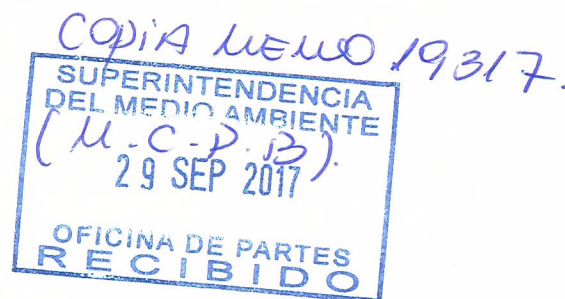 COPIA MEMO 19317.
SUPERINTENDENCIA
DEL MEDIO AMBIENTE
(M.C.P.B).
29 SEP 2017
OFICINA DE PARTES
RECIBIDO